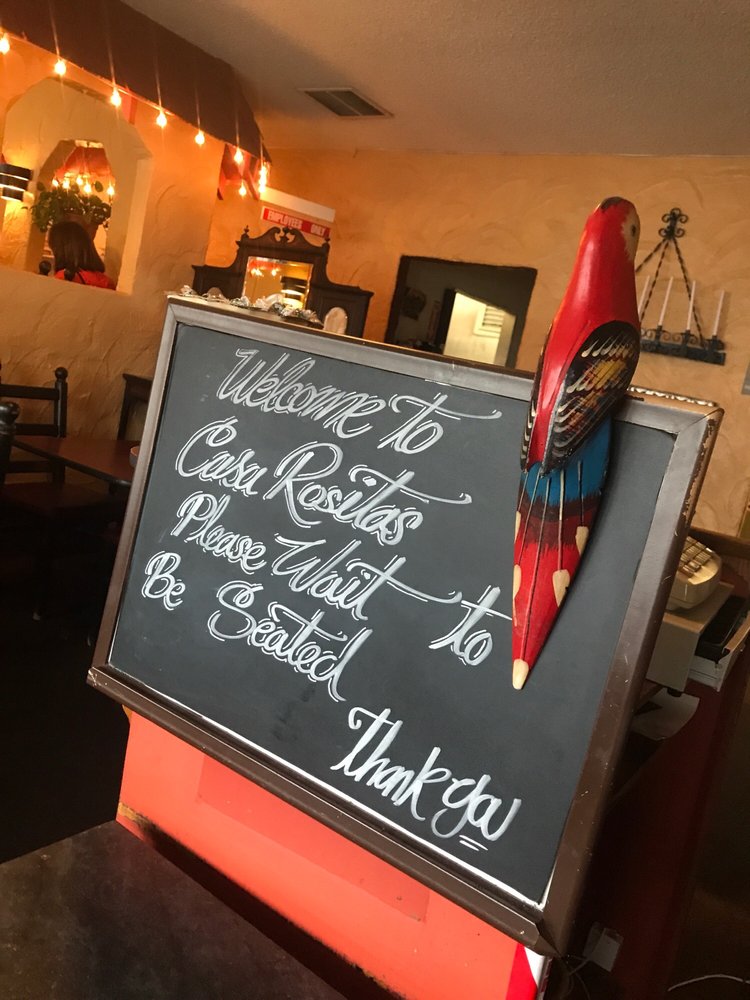 EMPLOYEES ONLY
Welcome to
Casa Rositas
Please Wait to
Be Seated
Thank you